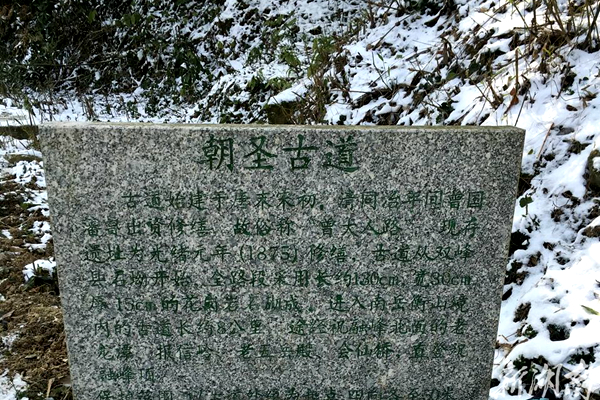 朝圣古道
古道始建于唐末宋初，清同治年间曾国
藩曾出资修缮，故俗称“曾大人路”。现存
遗址为光绪元年(1875)修缮，古道从双峰
县石坳开始，全路段采用长约130cm、宽30cm、
厚15cm的花岗岩石铺成，进入南岳衡山境
内的古道长约8公里，途 祝融峰北面的老
龙潭、报信岭、老圣帝殿、会仙桥，直登祝
融峰顶。